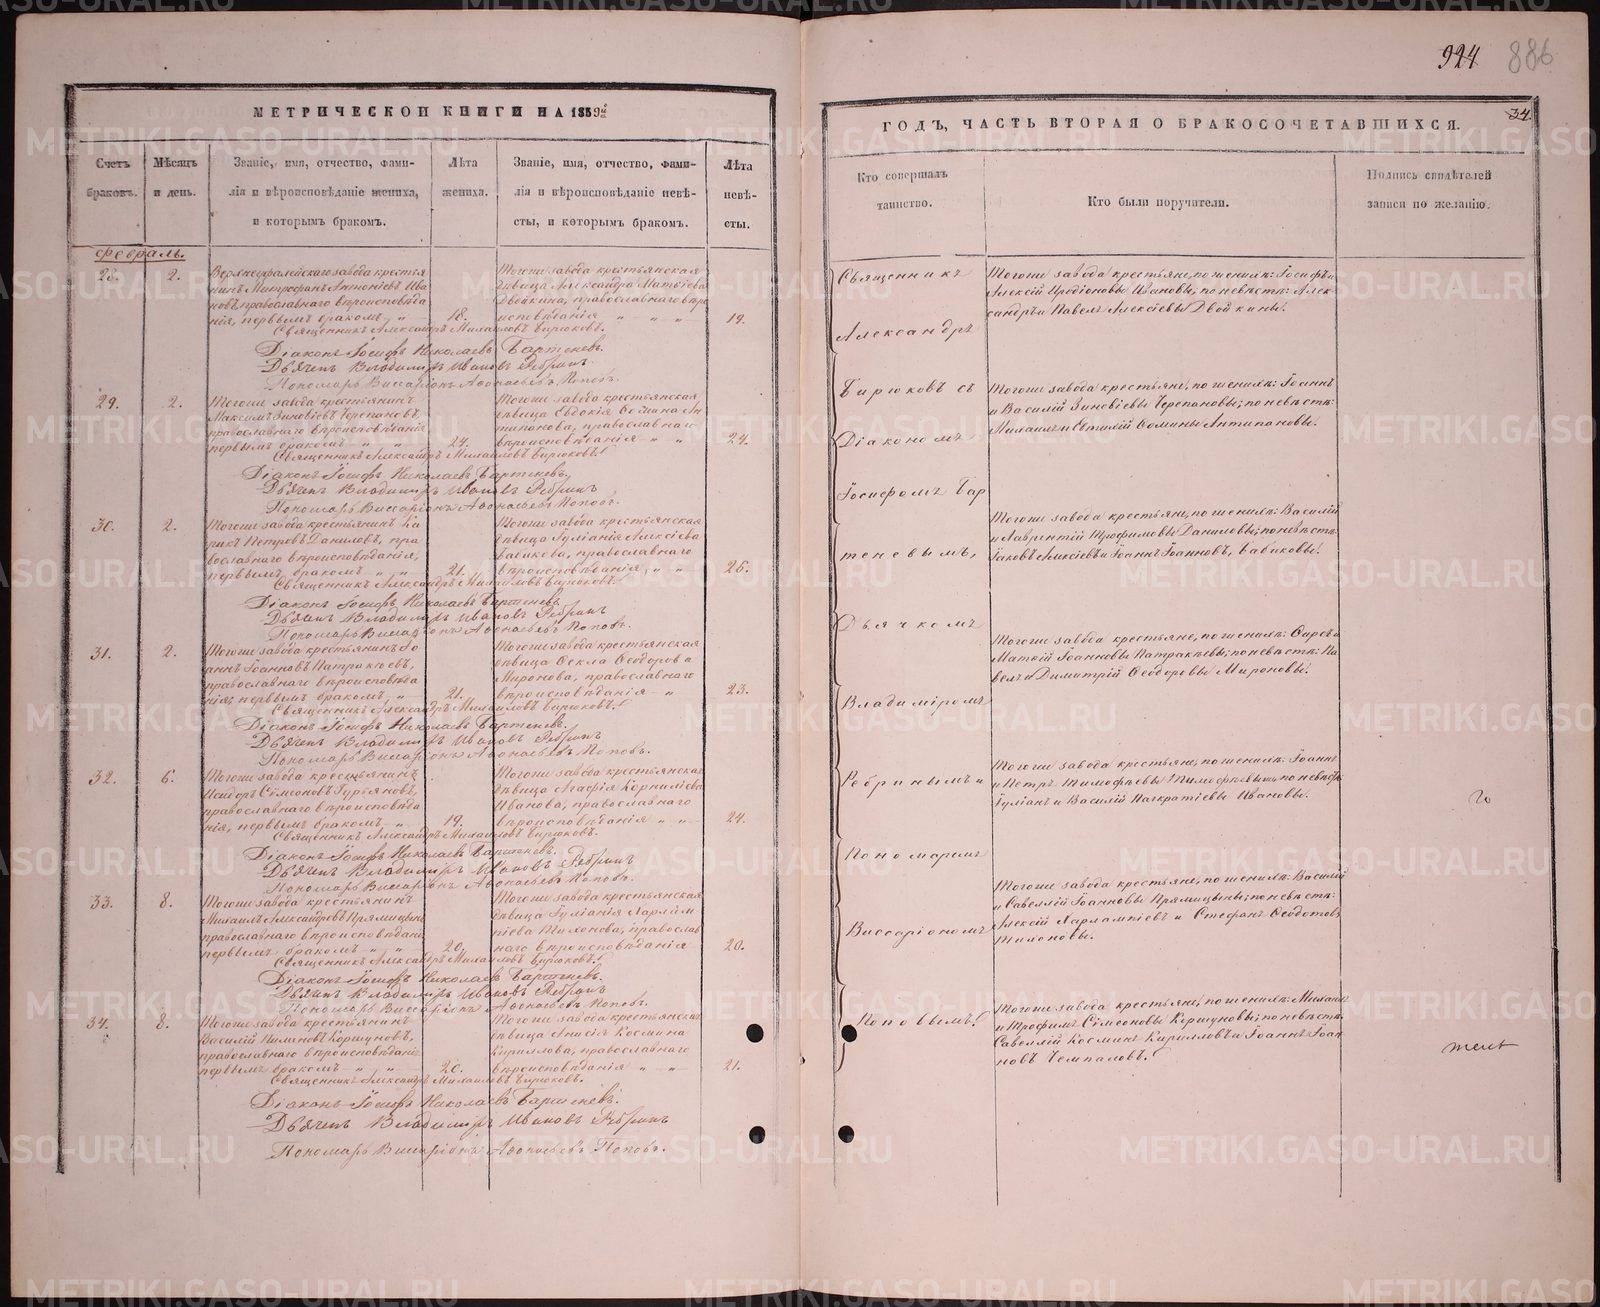 924 886
МЕТРИЧЕСКОЙ КНИГИ НА 1859й
Счетъ браковъ.
Мѣсяцъ и день.
Званіе, имя, отчество, фами-
лія и вѣроисповѣданіе жениха,
и которымъ бракомъ.
Лѣта
жениха.
Званіе, имя, отчество, фами-
лія и вѣроисповѣданіе невѣ-
сты, и которымъ бракомъ.
Лѣта
невѣ-
сты.
Февраль.
28. 2.
Верхнеуфалейскаго завода крестья
нинъ Митрофанъ Антоніевъ Ива
новъ, православнаго вѣроисповѣда
нія, первымъ бракомъ
18.
Тогоже завода крестьянская
дѣвица Александра Матѳіева
Двойкина, православнаго вѣро
исповѣданія
19.
Священникъ Александръ Михайловъ Бирюковъ.
Діаконъ Іосифъ Николаевъ Бартеневъ.
Дьячекъ Владимиръ Ивановъ Ребринъ.
Пономарь Виссаріонъ Аѳонасьевъ Поповъ.
29. 2.
Тогоже завода крестьянинъ
Максимъ Зиновіевъ Черепановъ,
православнаго вѣроисповѣданія
первымъ бракомъ
24.
Тогоже завода крестьянская
дѣвица Евдокія Ѳомина Ан
типанова, православнаго
вѣроисповѣданія
24.
Священникъ Александръ Михайловъ Бирюковъ.
Діаконъ Іосифъ Николаевъ Бартеневъ.
Дьячекъ Владимиръ Ивановъ Ребринъ
Пономарь Виссаріонъ Аѳонасьевъ Поповъ.
30. 2.
Тогоже завода крестьянинъ
Петровъ Даниловъ, пра
вославнаго вѣроисповѣданія,
первымъ бракомъ
21.
Тогоже завода крестьянская
дѣвица Іуліанія Алексіева
Бабикова, православнаго
вѣроисповѣданія
26.
Священникъ Александръ Михайловъ Бирюковъ.
Діаконъ Іосифъ Николаевъ Бартеневъ
Дьячекъ Владимиръ Ивановъ Ребринъ
Пономарь Виссаріонъ Аѳонасьевъ Поповъ.
31. 2.
Тогоже завода крестьянинъ Іо
аннъ Іоанновъ Патракѣевъ,
православнаго вѣроисповѣда
нія, первымъ бракомъ
21.
Тогоже завода крестьянская
дѣвица Ѳекла Ѳеодорова
Миронова, православнаго
вѣроисповѣданія
23.
Священникъ Александръ Михайловъ Бирюковъ.
Діаконъ Іосифъ Николаевъ Бартеневъ.
Дьячекъ Владимиръ Ивановъ Ребринъ
Пономарь Виссаріонъ Аѳонасьевъ Поповъ.
32. 6.
Тогоже завода крестьянинъ
Исидоръ Сѵмеоновъ Гурьяновъ,
православнаго вѣроисповѣда
нія, первымъ бракомъ
19.
Тогоже завода крестьянская
дѣвица Агафія Корниліева
Иванова, православнаго
вѣроисповѣданія
24.
Священникъ Александръ Михайловъ Бирюковъ.
Діаконъ Іосифъ Николаевъ Бартеневъ.
Дьячекъ Владимиръ Ивановъ Ребринъ
Пономарь Виссаріонъ Аѳонасьевъ Поповъ.
33. 8.
Тогоже завода крестьянинъ
Михаилъ Александровъ Прямицынъ
православнаго вѣроисповѣданія
первымъ бракомъ
20.
Тогоже завода крестьянская
дѣвица Іуліанія Харлам
піева Тихонова, православ
наго вѣроисповѣданія
20.
Священникъ Александръ Михайловъ Бирюковъ.
Діаконъ Іосифъ Николаевъ Бартеневъ.
Дьячекъ Владимиръ Ивановъ Ребринъ
Пономарь Виссаріонъ Аѳонасьевъ Поповъ.
34. 8.
Тогоже завода крестьянинъ
Василій Пименовъ Коршуновъ,
православнаго вѣроисповѣданія
первымъ бракомъ
20.
Тогоже завода крестьянская
дѣвица Анисія Космина
Кириллова, православнаго
вѣроисповѣданія
21.
Священникъ Александръ Михайловъ Бирюковъ.
Діаконъ Іосифъ Николаевъ Бартеневъ.
Дьячекъ Владимиръ Ивановъ Ребринъ
Пономарь Виссаріонъ Аѳонасьевъ Поповъ.
34.
ГОДЪ, ЧАСТЬ ВТОРАЯ О БРАКОСОЧЕТАВШИХСЯ.
Кто совершалъ
таинство.
Кто были поручители.
Подпись свидѣтелей
записи по желанію.
Священникъ
Александръ
Бирюковъ съ
Діакономъ
Іосифомъ Бар
теневымъ,
Дьячкомъ
Владиміромъ
Ребринымъ и
Пономаремъ
Виссаріономъ
Поповымъ.
Тогоже завода крестьяне, по женихѣ: Іосифъ и
Алексій Иродіоновы Ивановы, по невѣстѣ: Алек
сандръ и Павелъ Алексіевы Двойкины.
Тогоже завода крестьяне, по женихѣ: Іоаннъ
и Василій Зиновіевы Черепановы; по невѣстѣ:
Михаилъ и Ѳомины Антипановы.
Тогоже завода крестьяне, по женихѣ: Василій
и Лаврентій Трофимовы Даниловы; по невѣстѣ:
Іаковъ Алексіевъ и Іоаннъ Іоанновъ, Бабиковы.
Тогоже завода крестьяне, по женихѣ: и
Матѳій Іоанновы Патракѣевы; по невѣстѣ: Па
велъ и Димитрій Ѳеодоровы Мироновы.
Тогоже завода крестьяне, по женихѣ: Іоаннъ
и Петръ Тимофѣевы по невѣстѣ:
Іуліанъ и Василій Панкратіевы Ивановы.
Тогоже завода крестьяне, по женихѣ: Василій
и Савеллій Іоанновы Прямицыны; по невѣстѣ:
Алексій Харлампіевъ и Стефанъ Ѳеодотовъ
Тихоновы.
Тогоже завода крестьяне, по женихѣ: Михаилъ
и Трофимъ Сѵмеоновы Коршуновы; по невѣстѣ:
Савеллій Косминъ Кирилловъ и Іоаннъ Іоан
новъ Чемпаловъ.
METRIKI.GASO-URAL.RU